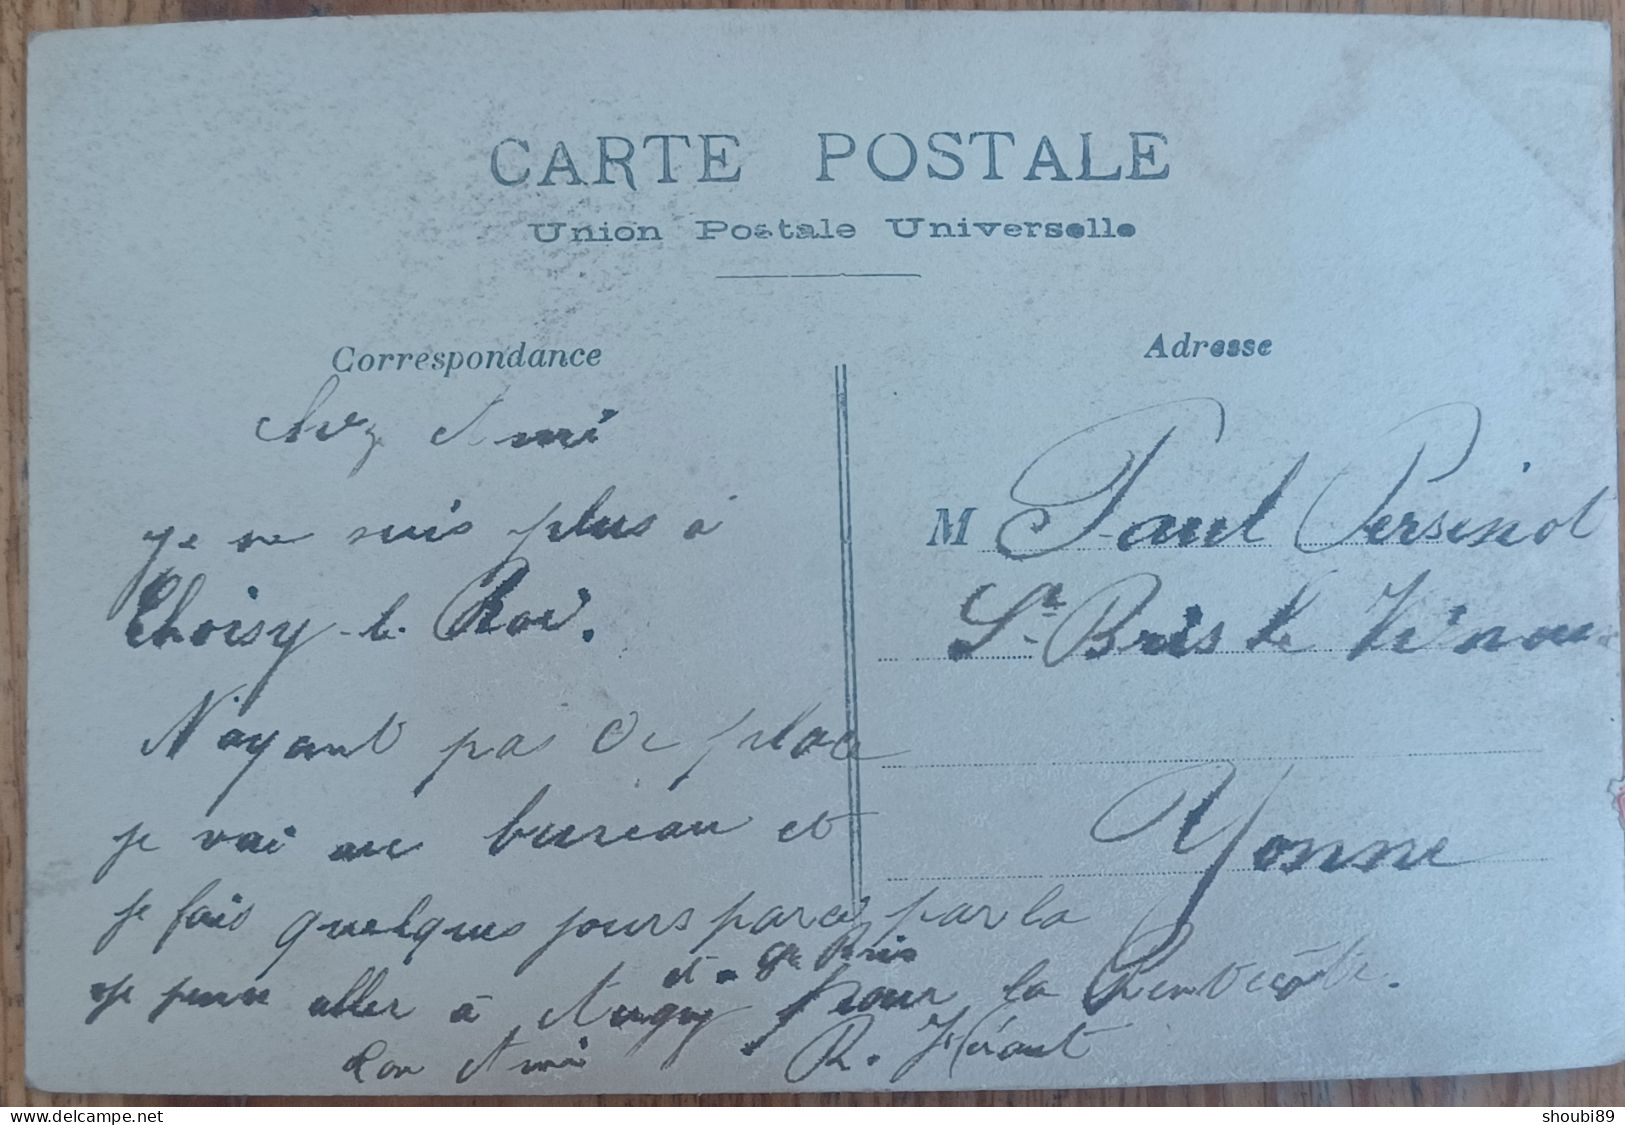 CARTE POSTALE
Union Postale Universelle
Correspondance
Cher Ami
je ne suis plus à
Choisy-le-Roi.
N'ayant pas de place
je vai au bureau et
je fais quelques jours par ci par la
et St Bris
je peux aller à Augy pour la Pentecôte.
Ton Ami R. Hérault
Adresse
M Paul Persenot
St Bris le Vineux
Yonne
shoubi89